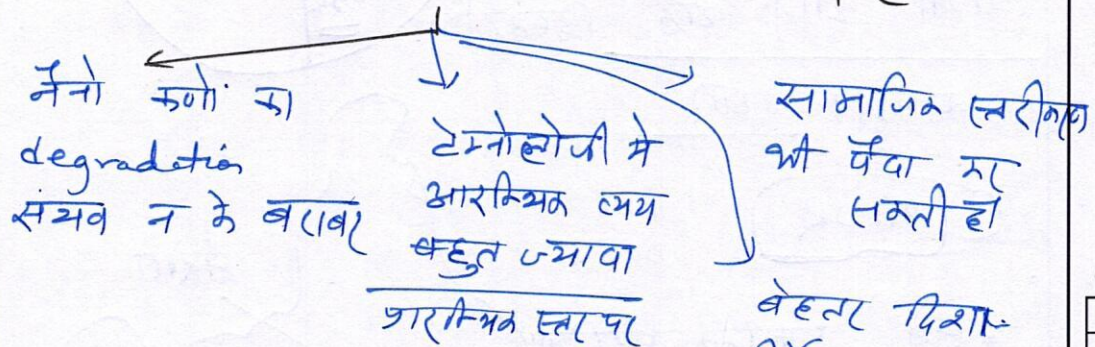 नैनो कणों का
degradation
संभव न के बराबर
टेक्नोलोजी मे
आरम्भिक व्यय
बहुत ज्यादा
प्रारम्भिक स्तर पर
सामाजिक स्तरीकरण
भी पैदा कर
सकती है
बेहतर दिशा-